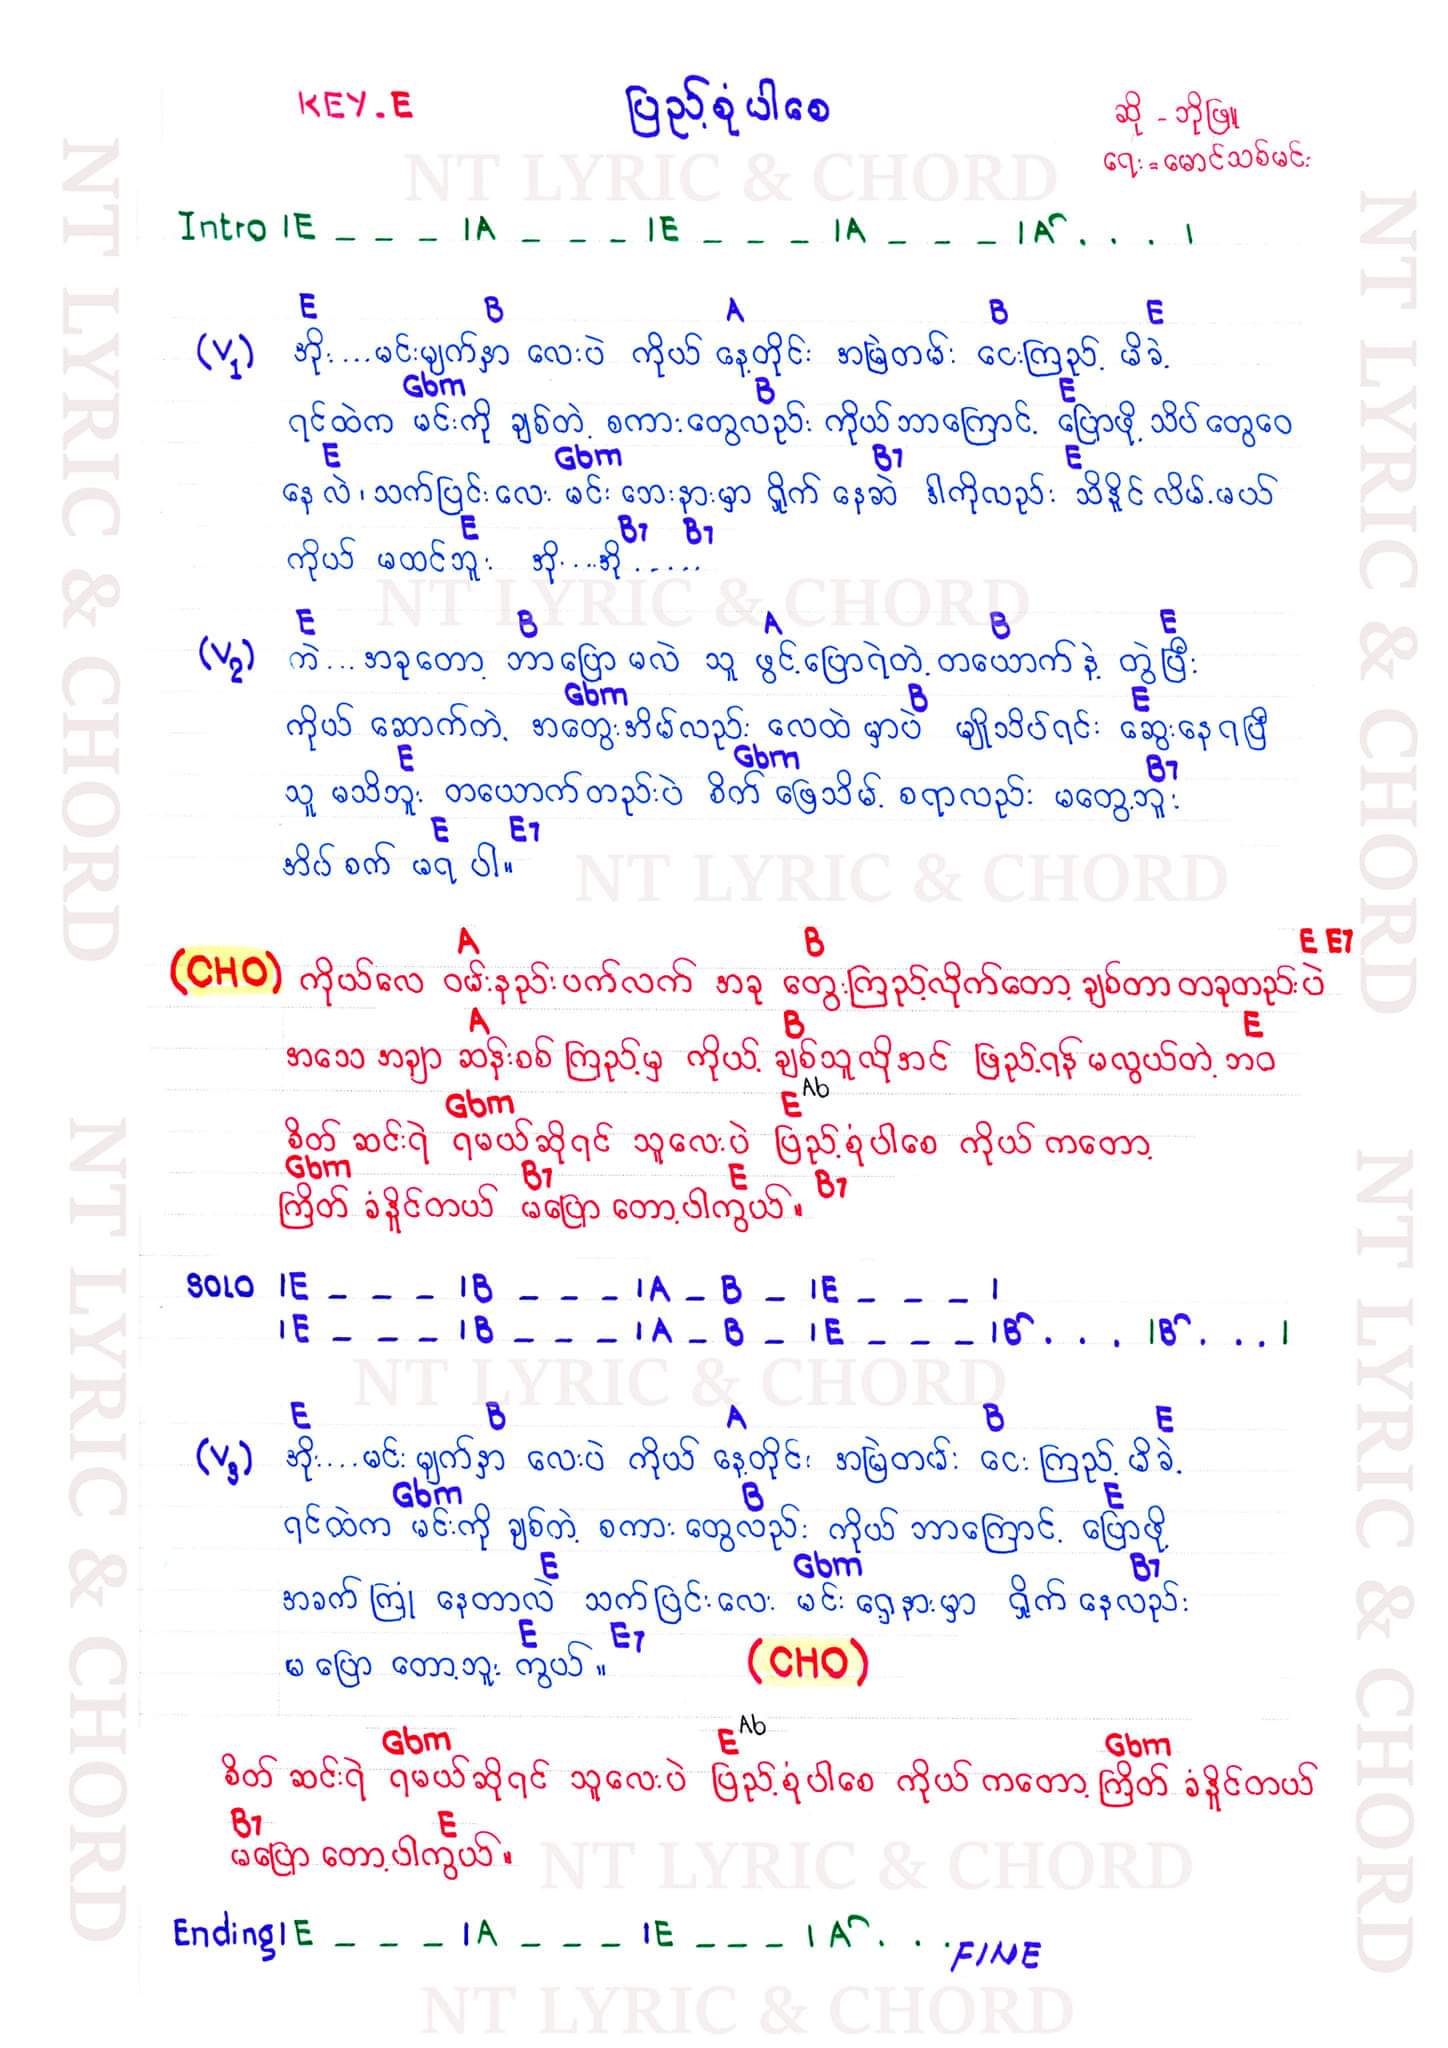 KEY.E
ပြည့်စုံပါစေ
ဆို - ဘိုဖြူ
ရေး = မောင်သစ်မင်း
NT LYRIC & CHORD
Intro |E _ _ _ |A _ _ _ |E _ _ _ |A _ _ _ |A . . . |
E B A B E
(V1) အိုး....မင်းမျက်နှာ လေးပဲ ကိုယ် နေ့တိုင်း အမြဲတမ်း ငေးကြည့် မိခဲ့
Gbm B E
ရင်ထဲက မင်းကို ချစ်တဲ့ စကားတွေလည်း ကိုယ်ဘာကြောင့် ပြောဖို့ သိပ်တွေဝေ
E Gbm B7 E
နေလဲ၊ သက်ပြင်းလေး မင်း ဘေးနားမှာ ရှိုက် နေဆဲ ဒါကိုလည်း သိနိူင်လိမ့်မယ်
E B7 B7
ကိုယ် မထင်ဘူး အို....အို......
NT LYRIC & CHORD
E B A B E
(V2) ကဲ...အခုတော့ ဘာပြောမလဲ သူ ဖွင့်ပြောရဲတဲ့ တယောက်နဲ့ တွဲပြီး
Gbm B E
ကိုယ် ဆောက်တဲ့ အတွေးအိမ်လည်း လေထဲမှာပဲ မျိုသိပ်ရင်း ဆွေးနေရပြီ
E Gbm B7
သူ မသိဘူး တယောက်တည်းပဲ စိတ် ဖြေသိမ့် စရာလည်း မတွေ့ဘူး
E E7
အိပ်စက် မရ ပါ။
NT LYRIC & CHORD
A B E E7
(CHO) ကိုယ်လေ ဝမ်းနည်းပက်လက် အခု တွေးကြည့်လိုက်တော့ ချစ်တာတခုတည်းပဲ
A B E
အသေ အချာ ဆန်းစစ်ကြည့်မှ ကိုယ့် ချစ်သူလိုအင် ဖြည့်ရန်မလွယ်တဲ့ဘဝ
Gbm E Ab
စိတ် ဆင်းရဲ ရမယ်ဆိုရင် သူလေးပဲ ပြည့်စုံပါစေ ကိုယ် ကတော့
Gbm B7 E B7
ကြိတ် ခံနိူင်တယ် မပြော တော့ပါကွယ်။
SOLO |E _ _ _ |B _ _ _ |A _ B _ |E _ _ _ |
|E _ _ _ |B _ _ _ |A _ B _ |E _ _ _ |B . . . |B . . . |
NT LYRIC & CHORD
E B A B E
(V3) အိုး....မင်းမျက်နှာ လေးပဲ ကိုယ် နေ့တိုင်း အမြဲတမ်း ငေးကြည့် မိခဲ့
Gbm B E
ရင်ထဲက မင်းကို ချစ်တဲ့ စကားတွေလည်း ကိုယ် ဘာကြောင့် ပြောဖို့
E Gbm B7
အခက်ကြုံ နေတာလဲ သက်ပြင်းလေး မင်း ရှေ့နားမှာ ရှိုက် နေလည်း
E E7
မပြော တော့ဘူး ကွယ်။ (CHO)
Gbm E Ab Gbm
စိတ် ဆင်းရဲ ရမယ်ဆိုရင် သူလေးပဲ ပြည့်စုံပါစေ ကိုယ် ကတော့ ကြိတ် ခံနိူင်တယ်
B7 E
မပြော တော့ပါကွယ်။
NT LYRIC & CHORD
Ending |E _ _ _ |A _ _ _ |E _ _ _ |A . . .
FINE
NT LYRIC & CHORD
NT LYRIC & CHORD
NT LYRIC & CHORD
NT LYRIC & CHORD
NT LYRIC & CHORD